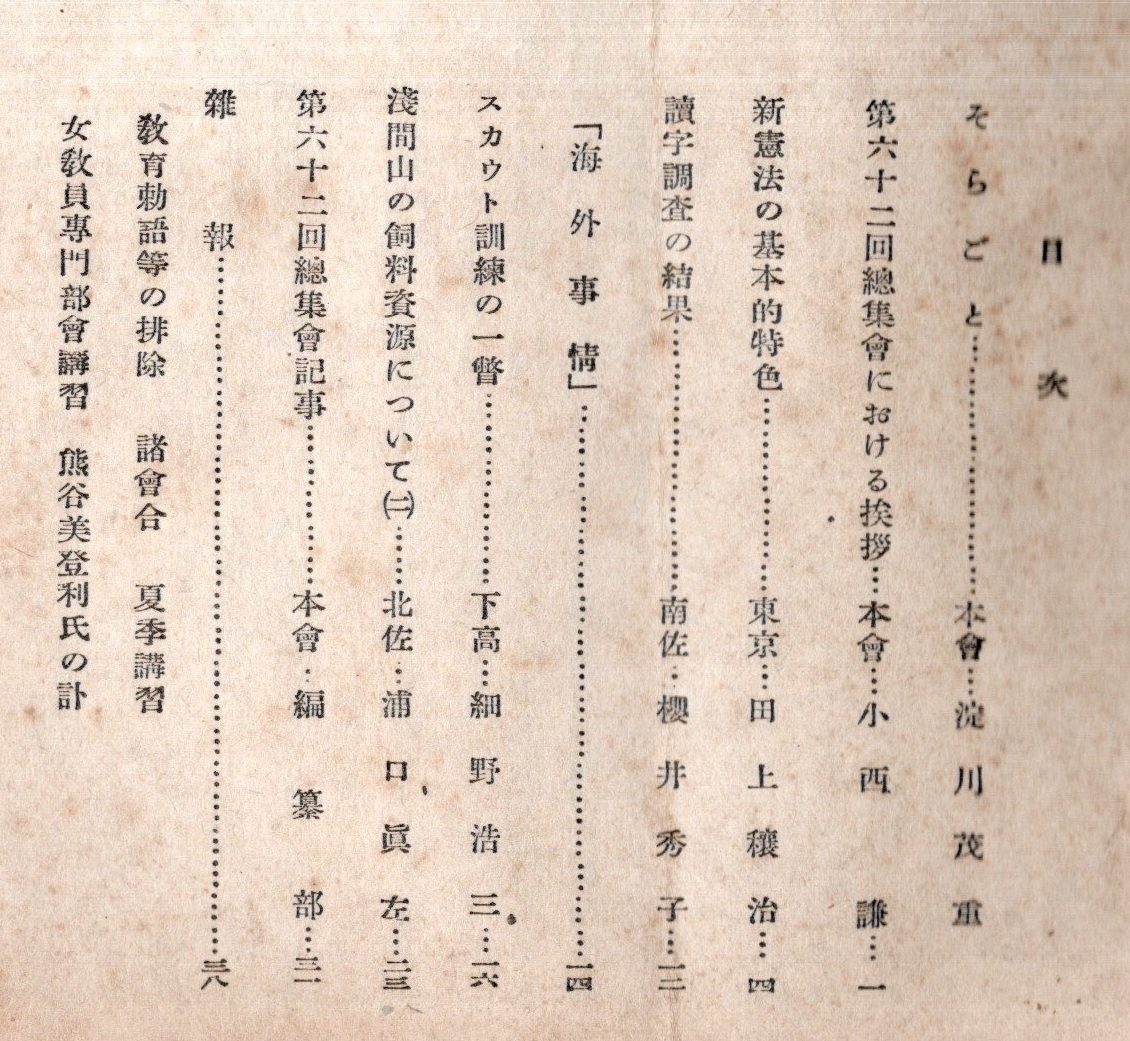 目次
そらごと……………………本會…淀川茂重
第六十二回總集會における挨拶…本會…小西謙…一
新憲法の基本的特色………………東京…田上穰治…四
讀字調査の結果……………………南佐…櫻井秀子…一二
「海外事情」……………………………………………一四
スカウト訓練の一瞥………………下高…細野浩三…一六
淺間山の飼料資源について㈡……北佐…浦口眞左…二三
第六十二回總集會記事……………本會…編纂部…三一
雜報………………………………………………………三八
敎育勅語等の排除 諸會合 夏季講習
女敎員專門部會講習 熊谷美登利氏の訃